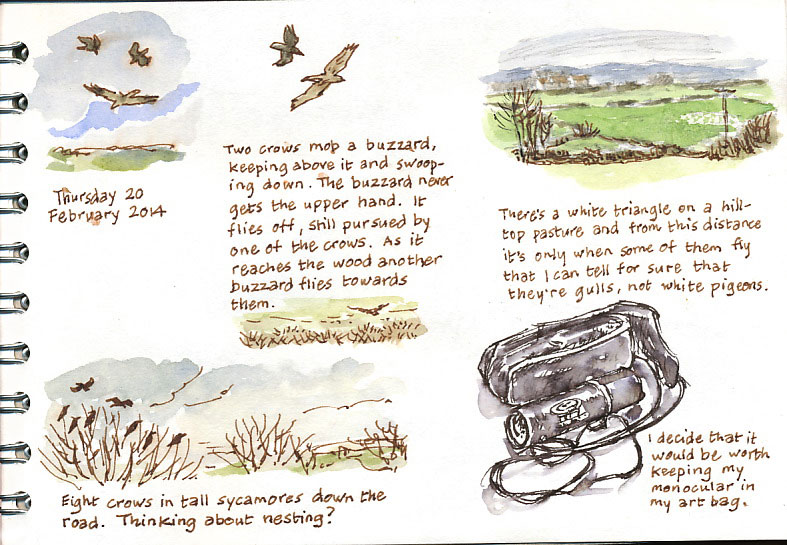 Thursday 20
February 2014
Two crows mob a buzzard,
keeping above it and swoop-
ing down. The buzzard never
gets the upper hand. It
flies off, still pursued by
one of the crows. As it
reaches the wood another
buzzard flies towards
them.
Eight crows in tall sycamores down the
road. Thinking about nesting?
There's a white triangle on a hill-
top pasture and from this distance
it's only when some of them fly
that I can tell for sure that
they're gulls, not white pigeons.
I decide that it
would be worth
keeping my
monocular in
my art bag.